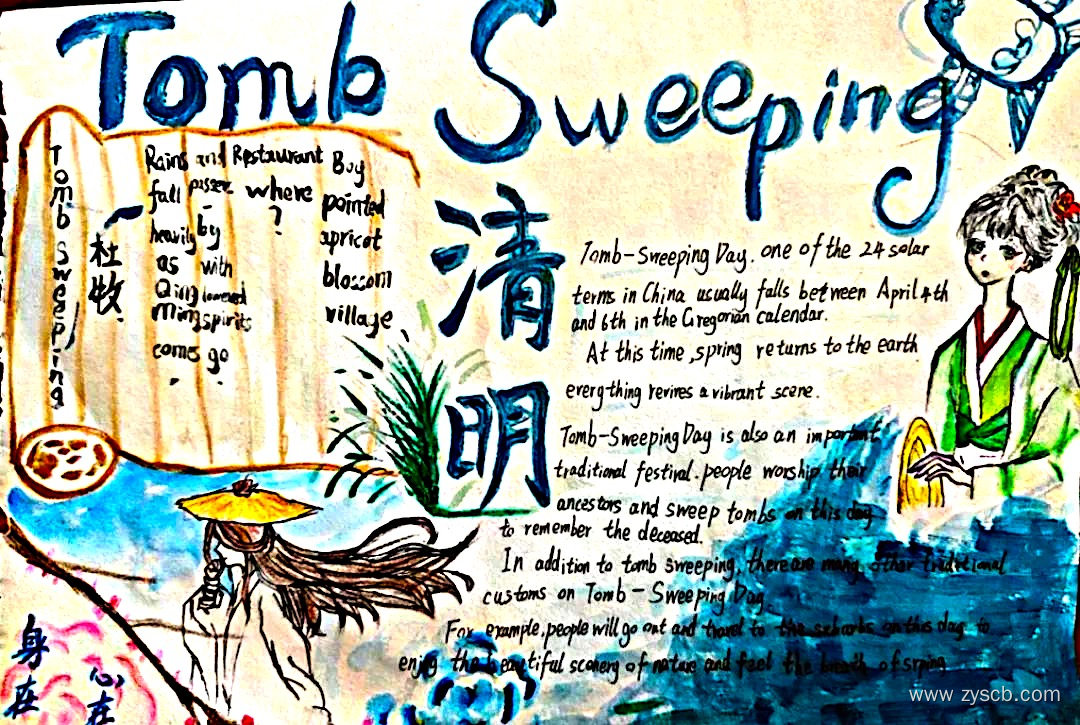 Tomb Sweeping
清明
Tomb Sweeping
杜牧
Rains
fall
heavily
as
Qing
Ming
comes
and
passers
by
with
lowered
spirits
go
Restaurant
where
?
Boy
pointed
apricot
blossom
village
Tomb-Sweeping Day. one of the 24 solar
terms in China usually falls between April 4th
and 6th in the Gregorian calendar.
At this time, spring returns to the earth
everg-thing revires a vibrant scene.
Tomb-Sweeping Day is also an important
traditional festival. people worship their
ancestors and sweep tombs on this day
to remember the deceased.
In addition to tomb sweeping, there are many other traditional
customs on Tomb-Sweeping Day
For example, people will go out and travel to the suburbs on this day to
enjoy the beautiful scenery of nature and feel the breath of srping
身在
心在
www.zyscb.com